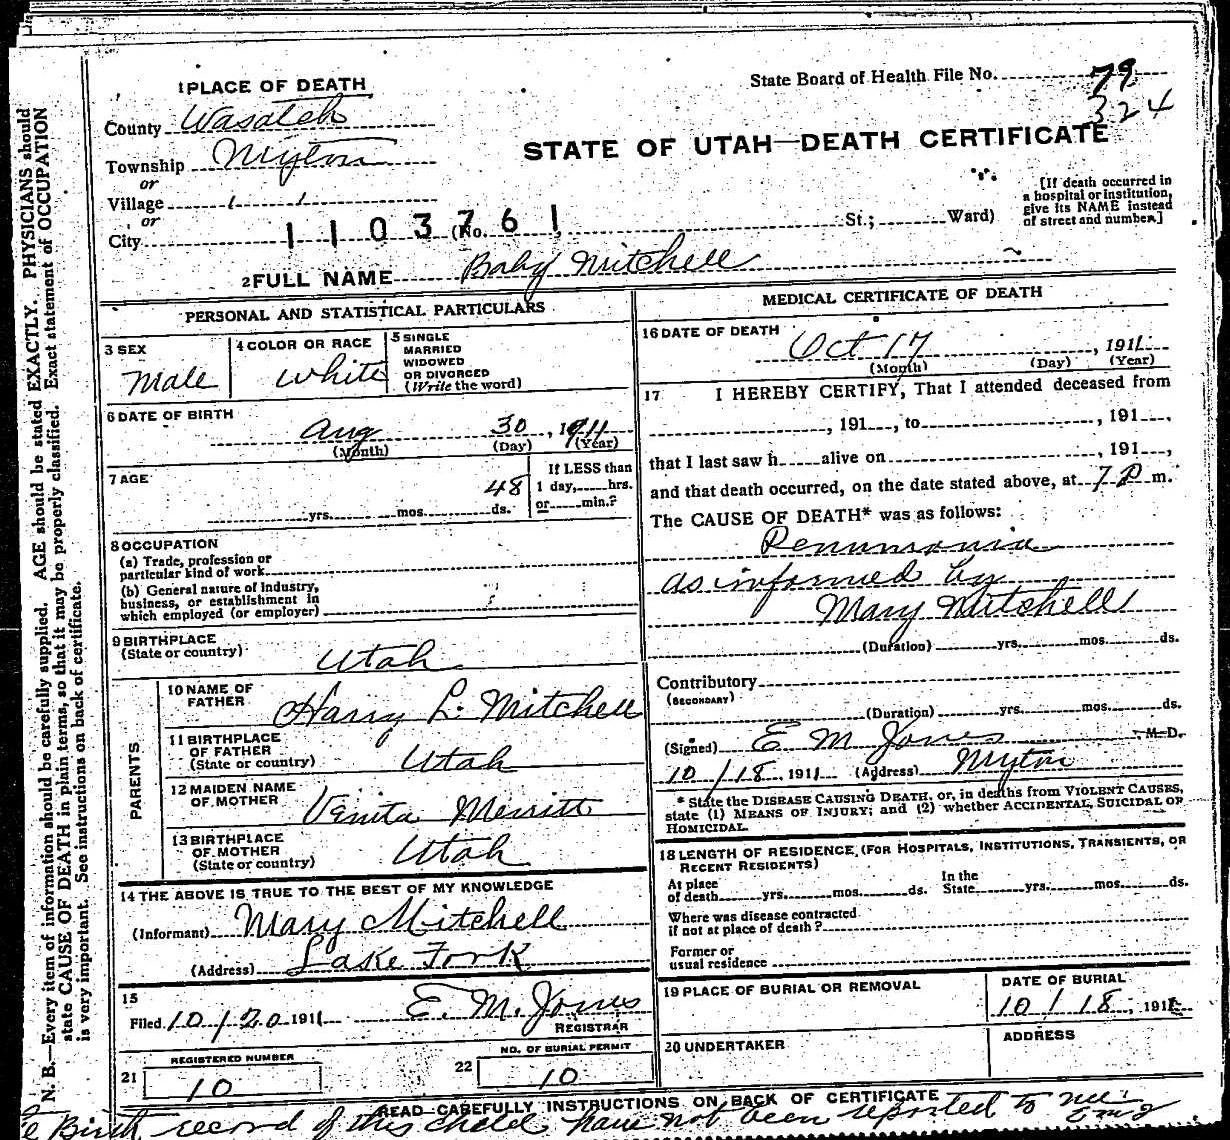 1 PLACE OF DEATH
State Board of Health File No. 79
324
County Wasatch
Township Myton
STATE OF UTAH—DEATH CERTIFICATE
or
Village
or
City 1103761 (No. St.; Ward)
[If death occurred in
a hospital or institution,
give its NAME instead
of street and number.]
2 FULL NAME Baby Mitchell
PERSONAL AND STATISTICAL PARTICULARS
3 SEX
Male
4 COLOR OR RACE
White
5 SINGLE
MARRIED
WIDOWED
OR DIVORCED
(Write the word)
6 DATE OF BIRTH
Aug 30, 1911
(Month) (Day) (Year)
7 AGE
48
yrs. mos. ds.
If LESS than
1 day, hrs.
or min.?
8 OCCUPATION
(a) Trade, profession or
particular kind of work
(b) General nature of industry,
business, or establishment in
which employed (or employer)
9 BIRTHPLACE
(State or country)
Utah
PARENTS
10 NAME OF
FATHER
Harry L. Mitchell
11 BIRTHPLACE
OF FATHER
(State or country)
Utah
12 MAIDEN NAME
OF MOTHER
Venita Merritt
13 BIRTHPLACE
OF MOTHER
(State or country)
Utah
14 THE ABOVE IS TRUE TO THE BEST OF MY KNOWLEDGE
(Informant) Mary Mitchell
(Address) Lake Fork
15
Filed 10/20 1911 E. M. Jones
REGISTRAR
21 REGISTERED NUMBER
10
22 NO. OF BURIAL PERMIT
10
MEDICAL CERTIFICATE OF DEATH
16 DATE OF DEATH
Oct 17, 1911
(Month) (Day) (Year)
17 I HEREBY CERTIFY, That I attended deceased from
, 191 , to , 191 ,
that I last saw h alive on , 191 ,
and that death occurred, on the date stated above, at 7 P m.
The CAUSE OF DEATH* was as follows:
Penumonia
as informed by
Mary Mitchell
(Duration) yrs. mos. ds.
Contributory
(SECONDARY)
(Duration) yrs. mos. ds.
(Signed) E M Jones M.D.
10/18 1911 (Address) Myton
* State the DISEASE CAUSING DEATH, or, in deaths from VIOLENT CAUSES,
state (1) MEANS OF INJURY; and (2) whether ACCIDENTAL, SUICIDAL OR
HOMICIDAL.
18 LENGTH OF RESIDENCE, (FOR HOSPITALS, INSTITUTIONS, TRANSIENTS, OR
RECENT RESIDENTS)
At place
of death yrs. mos. ds.
In the
State yrs. mos. ds.
Where was disease contracted
if not at place of death?
Former or
usual residence
19 PLACE OF BURIAL OR REMOVAL
DATE OF BURIAL
10/18, 191
20 UNDERTAKER
ADDRESS
READ CAREFULLY INSTRUCTIONS ON BACK OF CERTIFICATE
Birth record of this child have not been reported to me
EMJ
N. B.—Every item of information should be carefully supplied. AGE should be stated EXACTLY. PHYSICIANS should
state CAUSE OF DEATH in plain terms, so that it may be properly classified. Exact statement of OCCUPATION
is very important. See instructions on back of certificate.